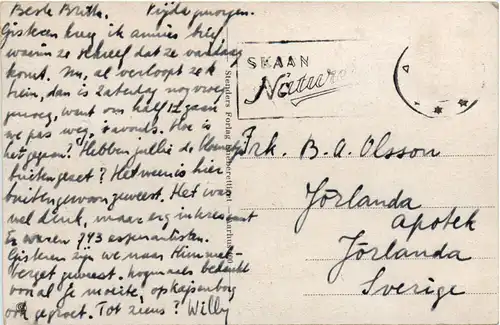 Beste Britta. Vrijdagmorgen.
Gisteren kreeg ik annies brief,
waarin ze schreef dat ze vandaag
komt. Nu, al verloopt ze k
trein, dan is Zaterdag nog vroeg
genoeg, want om half 12 gaan
we pas weg, 's avonds. Hoe is
het gegaan? Hebben jullie de bloemetjes
buitengezet? Het weer is hier
buitengewoon geweest. Het was
wel druk, maar erg interessant
Er waren 793 esperantisten.
Gisteren zijn we naar Himmel-
berget geweest. nogmaals bedankt
voor al je moeite, op
ook gegroet. Tot ziens? Willy
SKAAN
Naturen
Stenders Forlag Eneberettiget Aarhus
Frk. B. A. Olsson
Jörlanda
Apotek
Jörlanda
Sverige